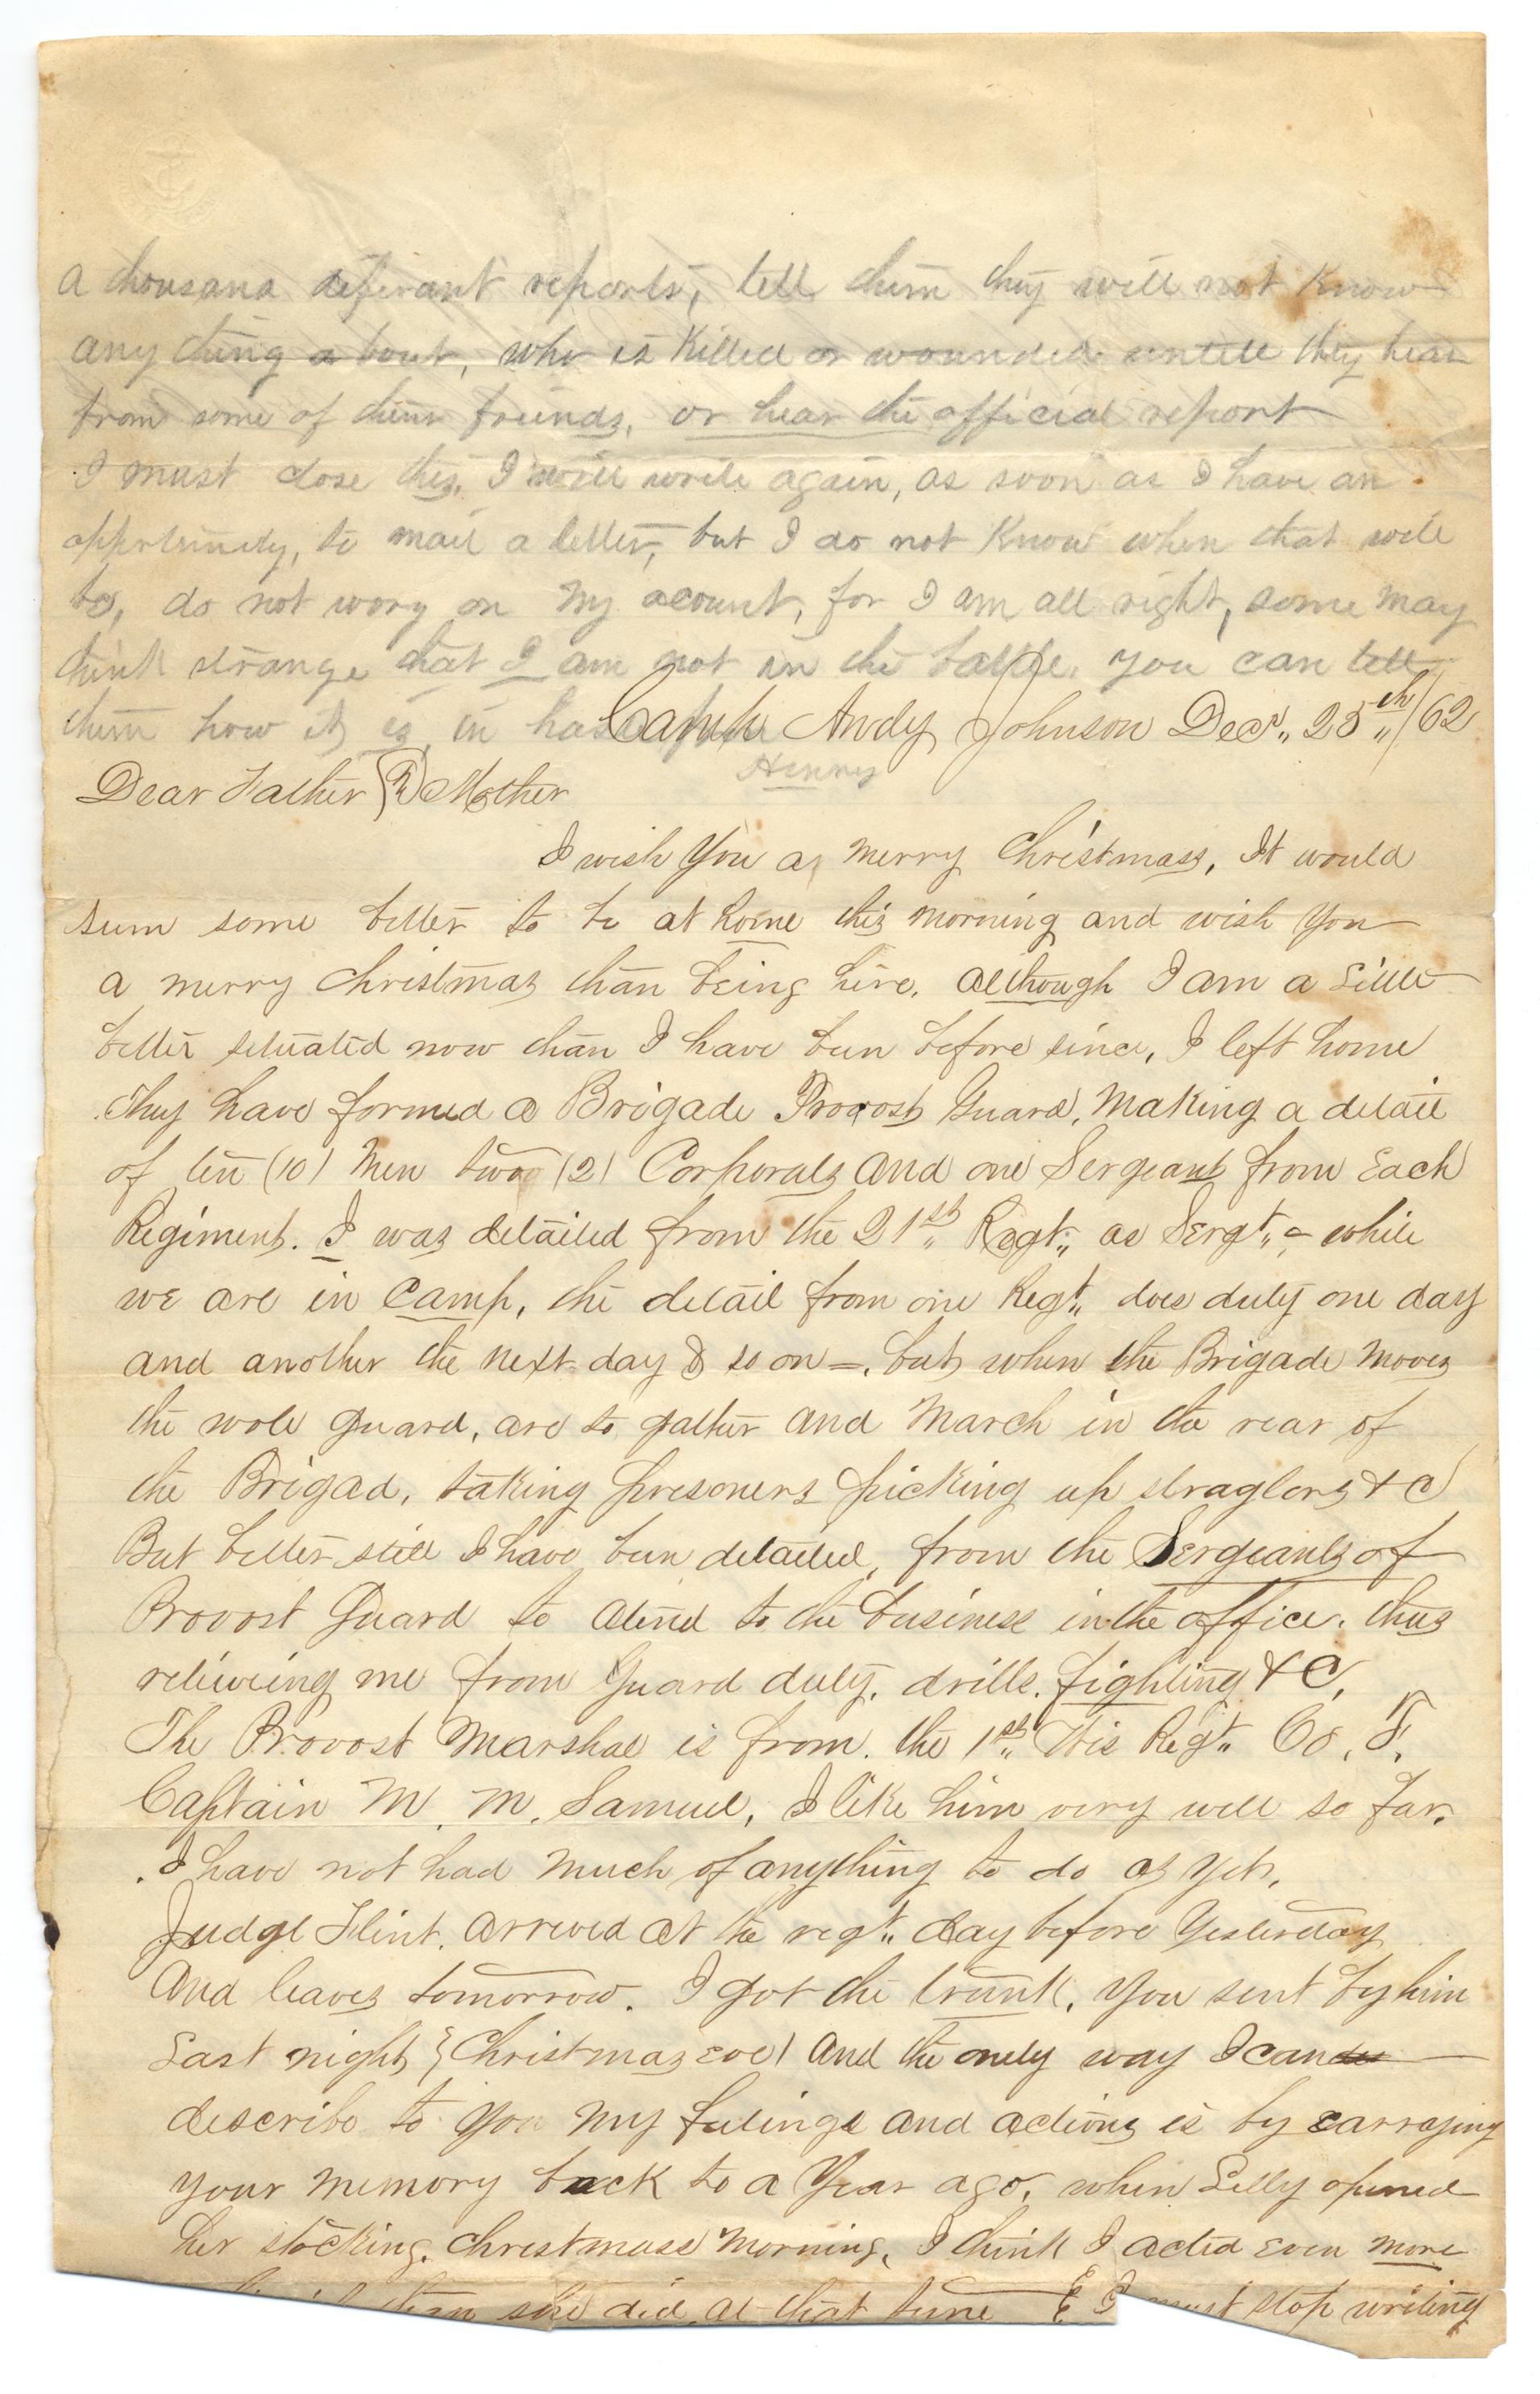 a thousand diferant reports, tell them they will not Know
any thing a bout, who is Killed or wounded untill they hear
from some of their friends, or hear the official report
I must close this, I will write again, as soon as I have an
oppertunity, to mail a letter, but I do not Know when that will
be, do not wory on my acount, for I am all right, some may
think strange that I am not in the battle. you can tell
them how it is, in haste
Henry
Camp Andy Johnson Decr,, 25th,,/62
Dear Father & Mother
I wish You a merry Christmass, It would
seem some better to be at home this morning and wish You
a merry Christmas than being here, although I am a Little
better setuated now than I have been before since, I left home
They have formed a Brigade Provost Guard, Making a detail
of ten (10) Men two (2) Corporals and one Sergeant from Each
Regiment. I was detailed from the 21st,, Regt,, as Sergt,, = while
we are in Camp, the detail from one Regt,, does duty one day
and another the next day & so on =, but when the Brigade Moves
the wole guard, are to gather and March in the rear of
the Brigad, taking presoners picking up straglers & C
But better still I have been detailed, from the Sergeants of
Provost Guard to atend to the business in the office. thus
relieveing me from Guard duty, drills, fighting & C,
The Provost Marshal is from. the 1st,, Wis Regt,, Co, F,
Captain M. M. Samuel, I like him very well so far.
I have not had much of anything to do as yet,
Judge Flint. arrived at the regt,, day before Yesterday
And leaves tomorrow. I got the trunk, You sent by him
Last night (Christmas eve) and the onely way I can
describe to You my feelings and actions is by carraying
your memory back to a Year ago, when Lilly opened
her stocking, Christmass Morning, I think I acted even more
than she did at that time I must stop writing